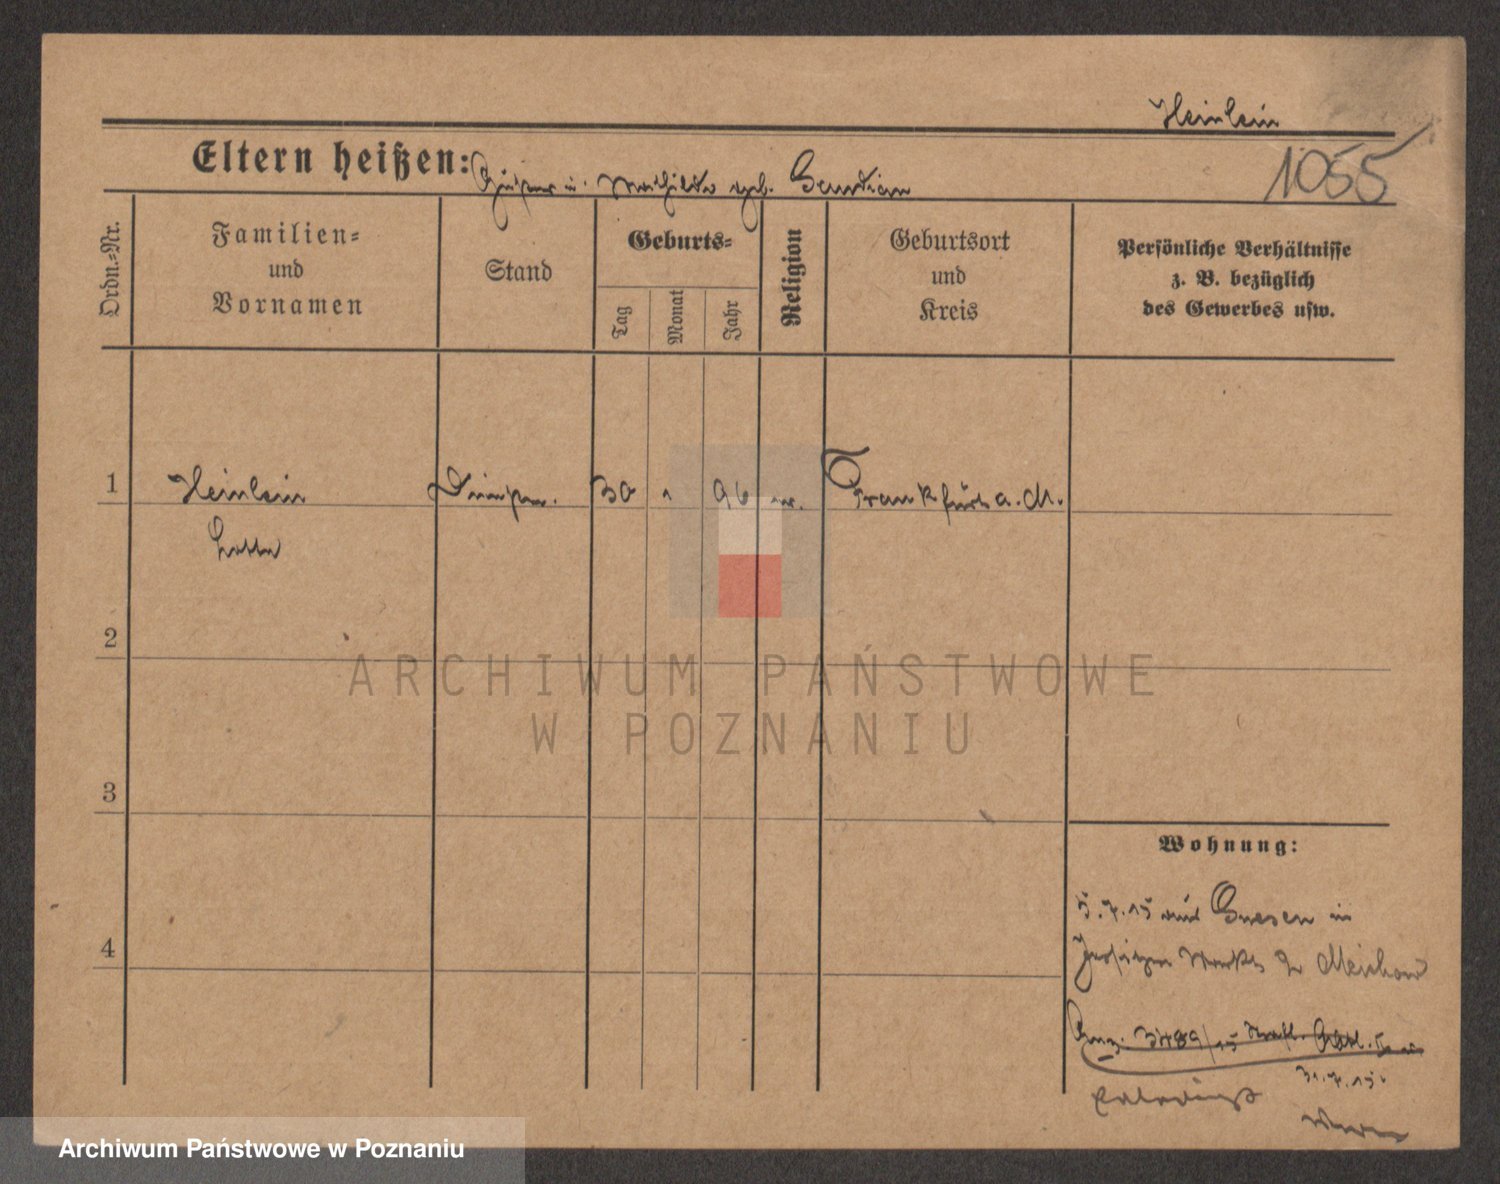 Heinlein
1055
Eltern heißen: Mathilde geb. Gaudian
Ordn.-Nr.
Familien-
und
Vornamen
Stand
Geburts-
Tag
Monat
Jahr
Religion
Geburtsort
und
Kreis
Persönliche Verhältnisse
z. B. bezüglich
des Gewerbes usw.
1
Heinlein
30
1
96
Frankfurt a. M.
Lotte
2
ARCHIWUM PAŃSTWOWE
W POZNANIU
3
Wohnung:
4
5.7.15 aus Gnesen in
Anz. 3489/15
31.7.15
Archiwum Państwowe w Poznaniu